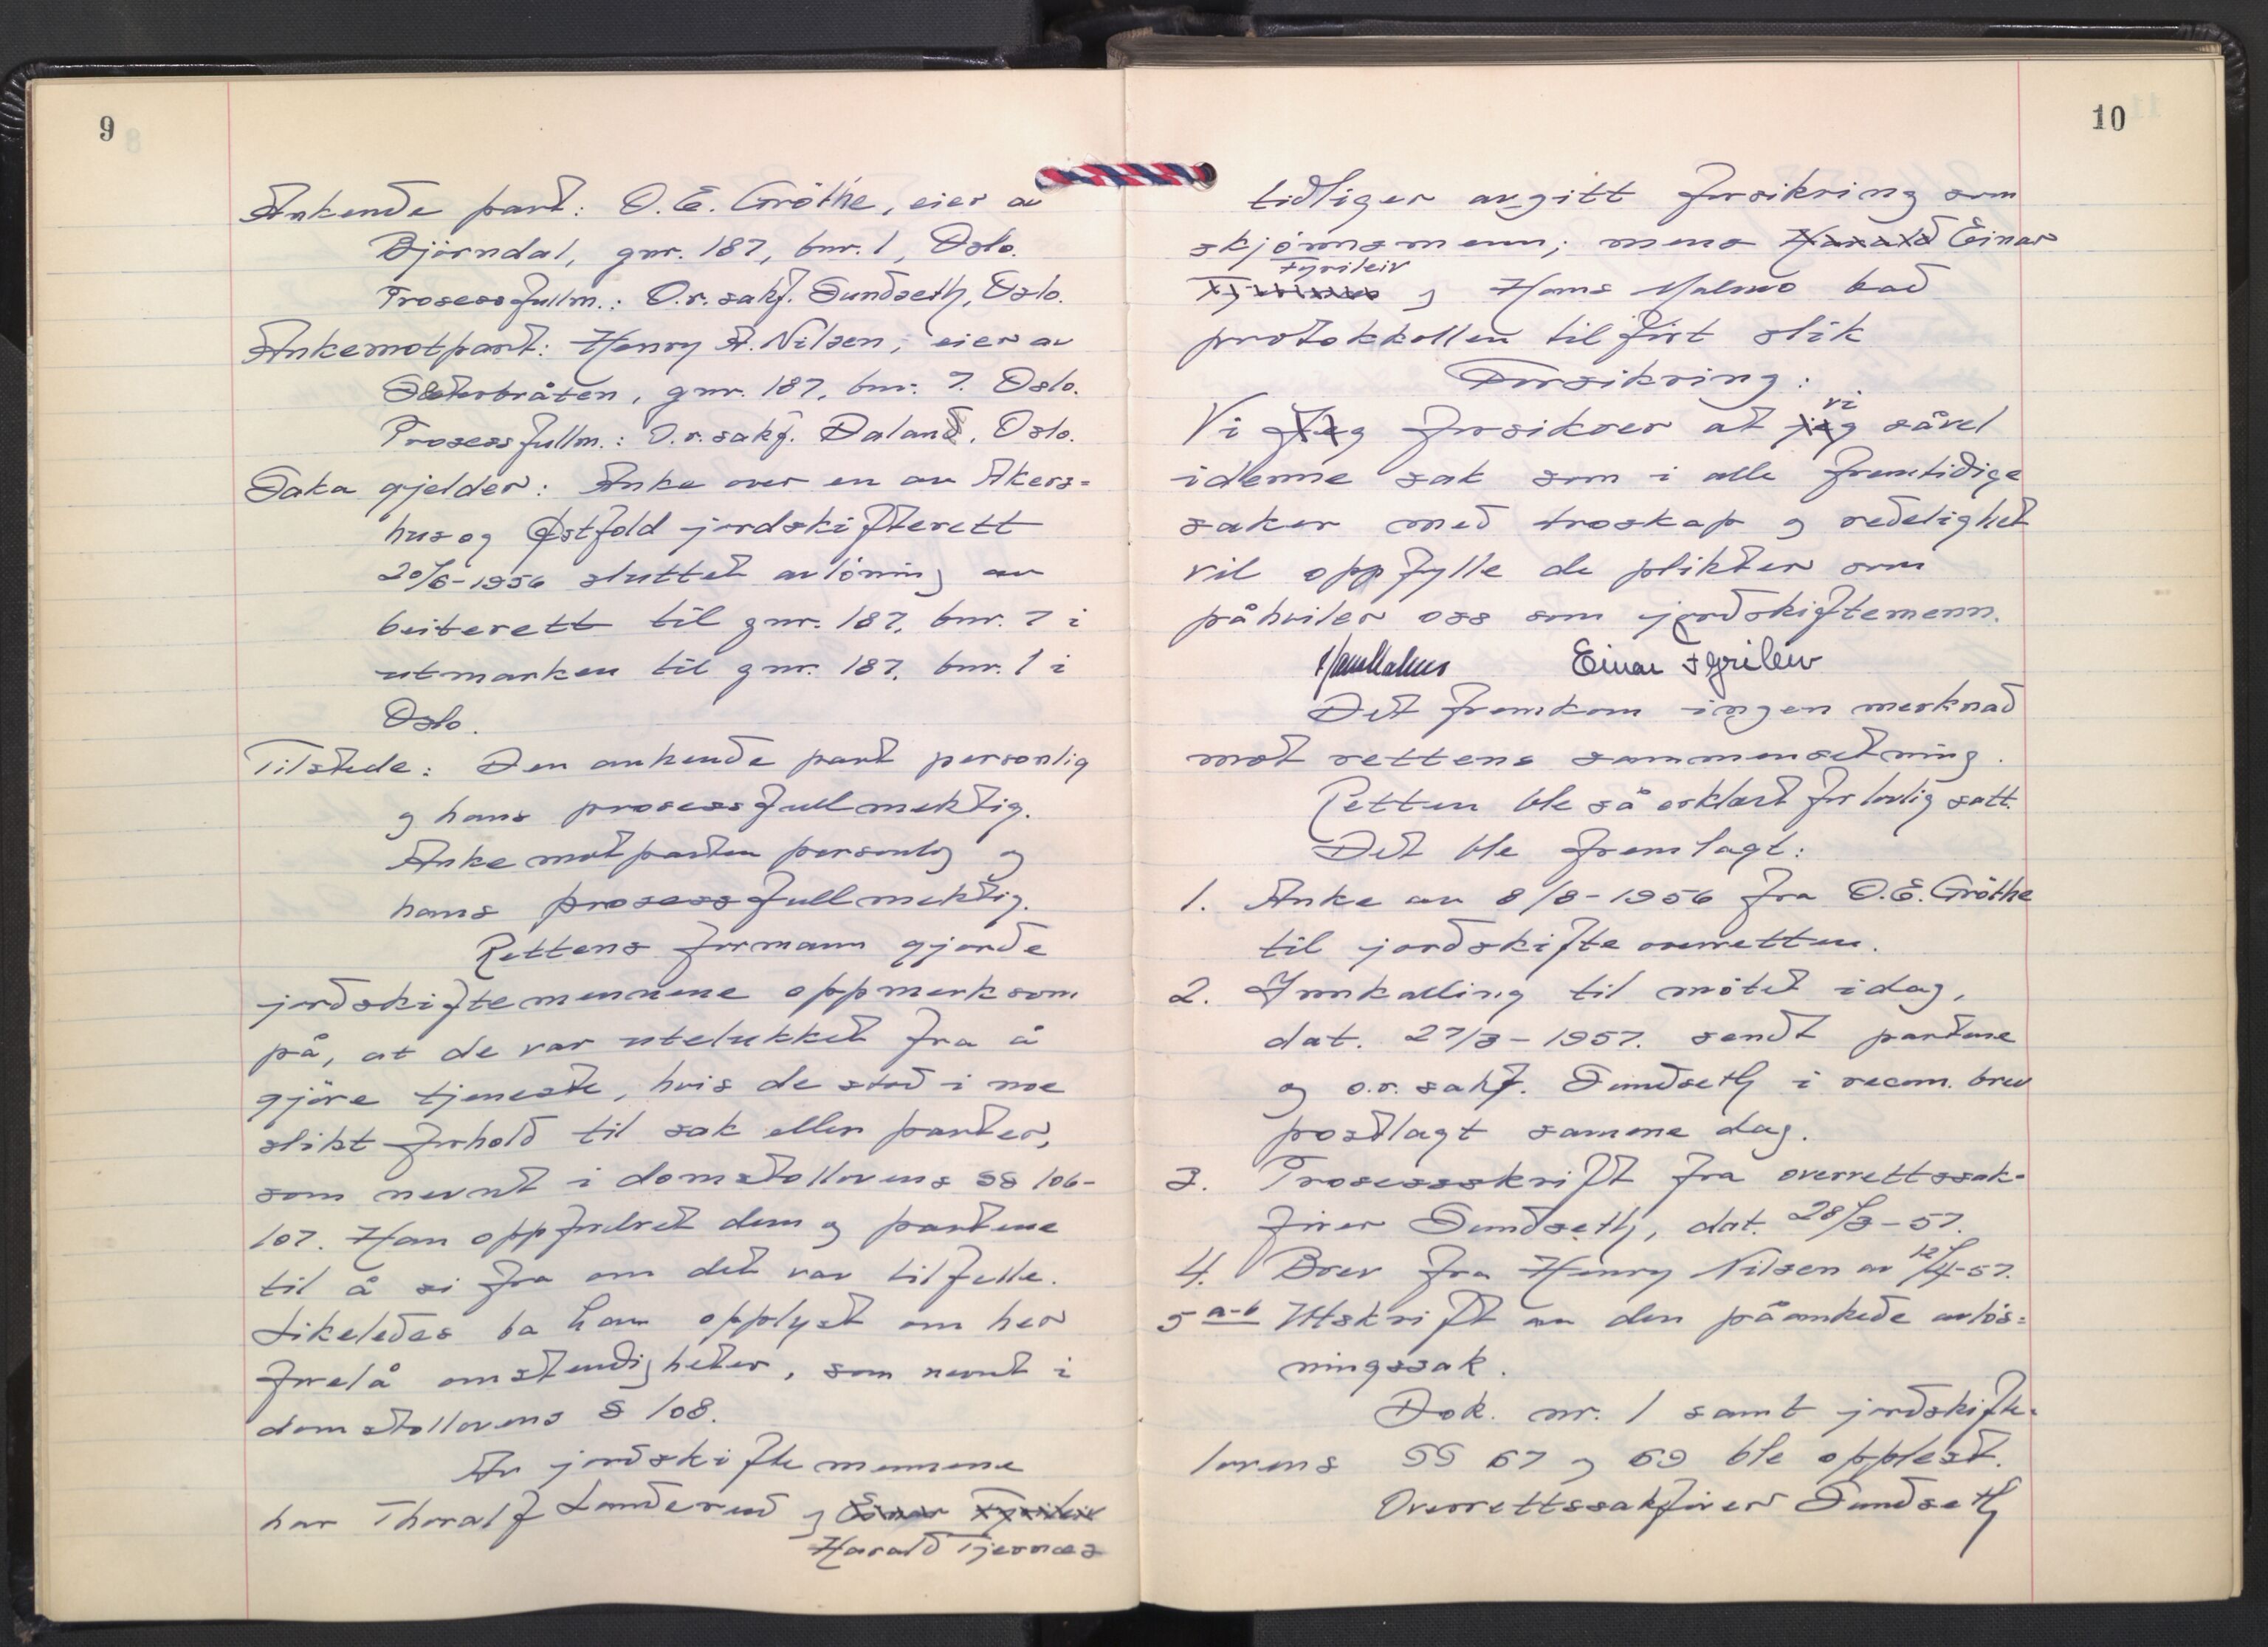 9
Ankende part: O. E. Gröthe, eier av
Björndal, gnr. 187, bnr. 1, Oslo.
Prosessfullm.: O.r.sakf. Sundseth, Oslo.
Ankemotpart: Henry A. Nilsen, eier av
Sæterbråten, gnr. 187, bnr. 7. Oslo.
Prosessfullm.: O.r.sakf. Daland, Oslo.
Saka gjelder: Anke over en av Akers=
hus og Østfold jordskifterett
20/6-1956 sluttet avlösning av
beiterett til gnr. 187, bnr. 7 i
utmarken til gnr. 187, bnr. 1 i
Oslo.
Tilstede: Den ankende part personlig
og hans prosessfullmektig.
Ankemotparten personlig og
hans prosessfullmektig.
Rettens formann gjorde
jordskiftemennene oppmerksom
på, at de var utelukket fra å
gjöre tjeneste, hvis de stod i noe
slikt forhold til sak eller parter,
som nevnt i domstollovens §§ 106-
107. Han oppfordret dem og partene
til å si fra om det var tilfelle.
Likeledes ba han opplyst om her
forelå omstendigheter, som nevnt i
domstollovens § 108.
Av jordskiftemennene
har Thoralf Landerud og Einar Fyrileiv
Harald Tjernæs
10
tidligere avgitt forsikring som
skjönnsmenn; mens Harald Einar
Fyrileiv
Tjernæs og Hans Malmo bad
protokkollen tilfört slik
Forsikring:
vi
Vi Jeg forsikrer at jeg såvel
idenne sak som i alle fremtidige
saker med troskap og redelighet
vil oppfylle de plikter som
påhviler oss som jordskiftemenn.
Hans Malmo Einar Fyrileiv
Det fremkom ingen merknad
mot rettens sammensetning.
Retten ble så erklært for lovlig satt.
Det ble fremlagt:
1. Anke av 8/8-1956 fra O.E. Gröthe
til jordskifteoverretten.
2. Innkalling til mötet idag,
dat. 27/3-1957. sendt partene
og o.r.sakf. Sundseth i recom. brev
postlagt samme dag.
3. Prosessskrift fra overrettssak-
förer Sundseth, dat. 28/3-57.
4. Brev fra Henry Nilsen av 12/4-57.
5 a-b Utskrift av den påankede avlös=
ningssak.
Dok. nr. 1 samt jordskifte-
lovens §§ 67 og 69 ble opplest.
Overrettssakförer Sundseth